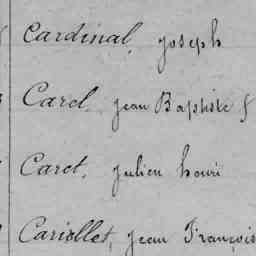 Cardinal, Joseph
Carel, Jean Baptiste f
Caret, Julien henri
Cariollet, Jean François